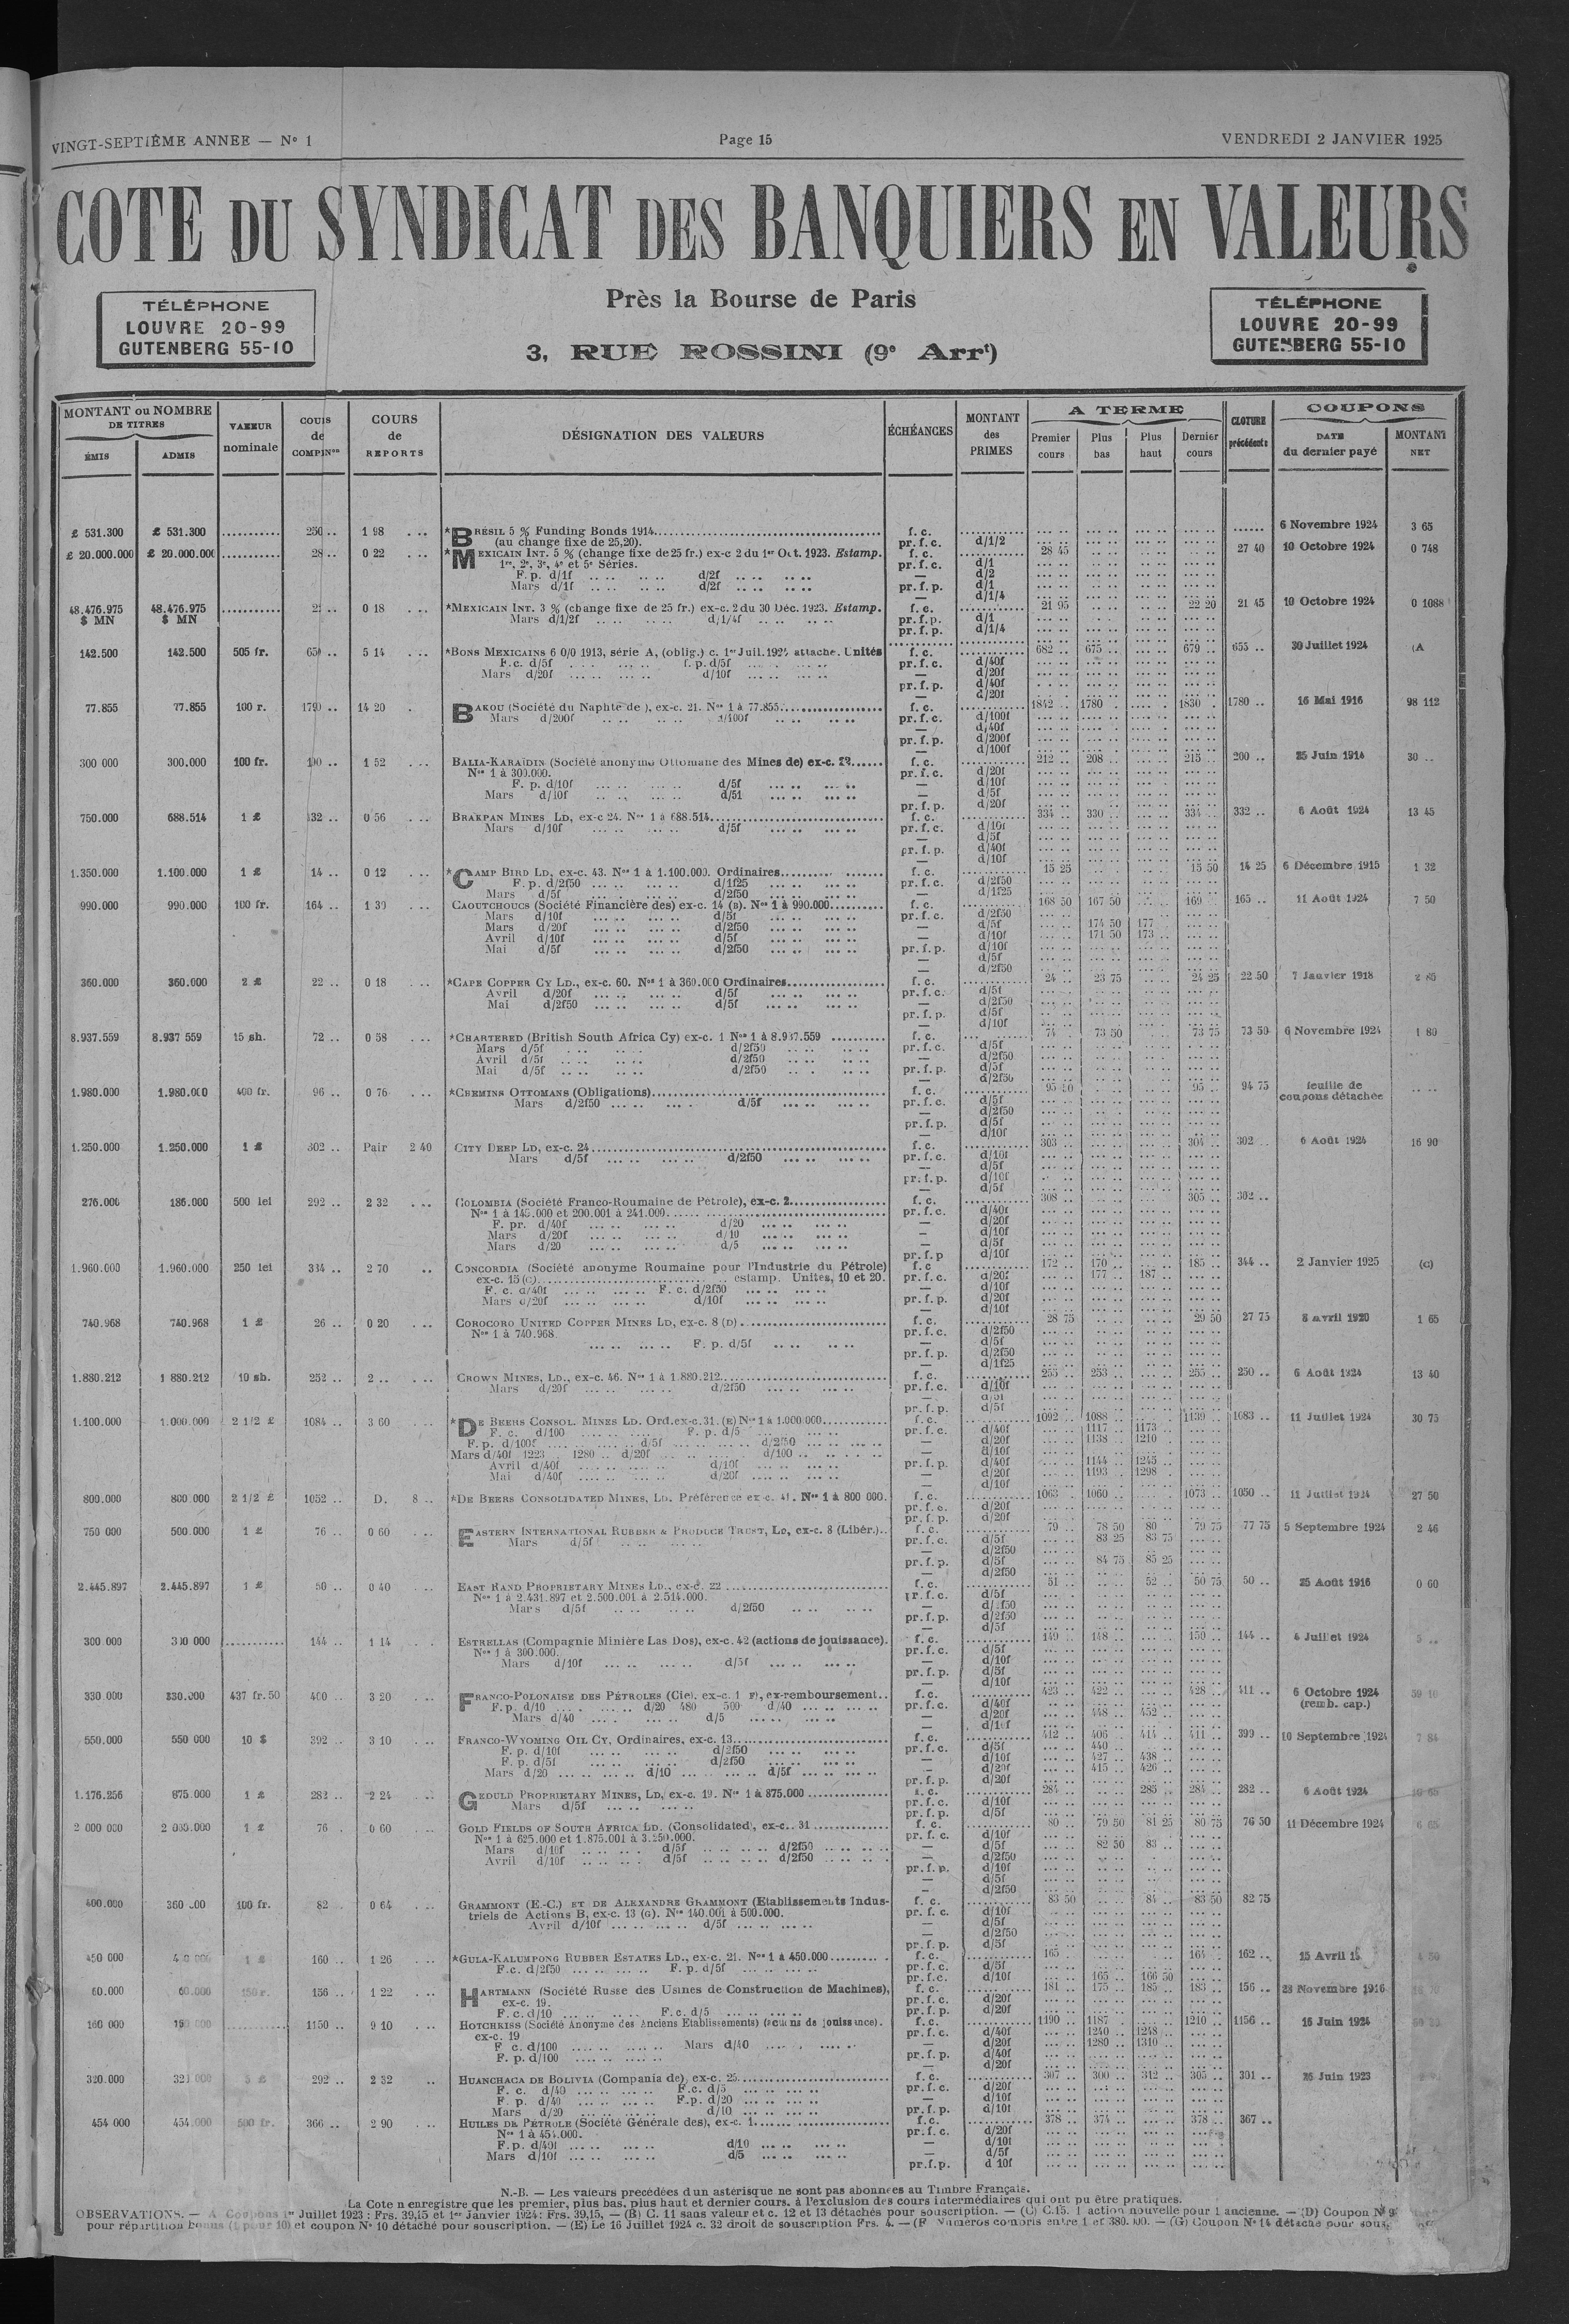 VINGT-SEPTIÈME ANNEE — N° 1
Page 15
VENDREDI 2 JANVIER 1925
COTE DU SYNDICAT DES BANQUIERS EN VALEURS
Près la Bourse de Paris
3, RUE ROSSINI (9e Arrt)
TÉLÉPHONE
LOUVRE 20-99
GUTENBERG 55-10
TÉLÉPHONE
LOUVRE 20-99
GUTENBERG 55-10
MONTANT ou NOMBRE DE TITRES
ÉMIS ADMIS
VALEUR nominale
COURS de COMPENon
COURS de REPORTS
DÉSIGNATION DES VALEURS
ÉCHÉANCES
MONTANT des PRIMES
A TERME
Premier cours Plus bas Plus haut Dernier cours
CLOTURE précédente
COUPONS
DATE du dernier payé MONTANT NET
£ 531.300 £ 531.300 250 .. 1 98 *BRÉSIL 5 % Funding Bonds 1914 f. c. 6 Novembre 1924 3 65
(au change fixe de 25,20). pr. f. c. d/1/2
£ 20.000.000 £ 20.000.000 28 .. 0 22 *MEXICAIN INT. 5 % (change fixe de 25 fr.) ex-c 2 du 1er Oct. 1923. Estamp. f. c. 28 45 27 40 10 Octobre 1924 0 748
1re, 2e, 3e, 4e et 5e Séries. pr. f. c. d/1
F. p. d/1f d/2f — d/2
Mars d/1f d/2f pr. f. p. d/1
— d/1/4
48.476.975 48.476.975 0 18 *MEXICAIN INT. 3 % (change fixe de 25 fr.) ex-c. 2 du 30 Déc. 1923. Estamp. f. c. 21 95 22 20 21 45 10 Octobre 1924 0 1088
$ MN $ MN Mars d/1/2f d/1/4f pr. f. p. d/1
pr. f. p. d/1/4
142.500 142.500 505 fr. 650 .. 5 14 *BONS MEXICAINS 6 0/0 1913, série A, (oblig.) c. 1er Juil. 1924 attache. Unités f. c. 682 .. 675 .. 679 .. 655 .. 30 Juillet 1924 (A
F.c. d/5f f. p. d/5f pr. f. c. d/40f
Mars d/20f d/10f — d/20f
pr. f. p. d/40f
— d/20f
77.855 77.855 100 r. 1790 .. 14 20 BAKOU (Société du Naphte de ), ex-c. 21. Nos 1 à 77.855 f. c. 1842 .. 1780 . 1830 . 1780 .. 16 Mai 1916 98 112
Mars d/200f d/100f pr. f. c. d/100f
— d/40f
pr. f. p. d/200f
— d/100f
300 000 300.000 100 fr. 190 .. 1 52 BALIA-KARAÏDIN (Société anonyme Ottomane des Mines de) ex-c. f. c. 212 .. 208 .. 215 .. 200 .. 25 Juin 1914 30 ..
Nos 1 à 300.000. pr. f. c. d/20f
F. p. d/10f d/5f — d/10f
Mars d/10f d/5f — d/5f
pr. f. p. d/20f
750.000 688.514 1 £ 332 .. 0 56 BRAKPAN MINES LD, ex-c 24. Nos 1 à 688.514 f. c. 334 .. 330 .. 334 .. 332 .. 6 Août 1924 13 45
Mars d/10f d/5f pr. f. c. d/10f
— d/5f
pr. f. p. d/40f
— d/10f
1.350.000 1.100.000 1 £ 14 .. 0 12 *CAMP BIRD LD, ex-c. 43. Nos 1 à 1.100.000. Ordinaires f. c. 15 25 15 50 14 25 6 Décembre 1915 1 32
F. p. d/2f50 d/1f25 pr. f. c. d/2f50
Mars d/5f d/2f50 — d/1f25
990.000 990.000 100 fr. 164 .. 1 30 CAOUTCHOUCS (Société Financière des) ex-c. 14 (B). Nos 1 à 990.000 f. c. 168 50 167 50 169 .. 165 .. 11 Août 1924 7 50
Mars d/10f d/5f pr. f. c. d/2f50
Mars d/20f d/2f50 — d/5f 174 50 177 ..
Avril d/10f d/5f — d/10f 171 50 173 ..
Mai d/5f d/2f50 pr. f. p. d/10f
— d/5f
— d/2f50
360.000 360.000 2 £ 22 .. 0 18 *CAPE COPPER CY LD., ex-c. 60. Nos 1 à 360.000 Ordinaires f. c. 24 .. 23 75 24 25 22 50 7 Janvier 1918 2 85
Avril d/20f d/5f pr. f. c. d/5f
Mai d/2f50 d/5f — d/2f50
pr. f. p. d/5f
— d/10f
8.937.559 8.937 559 15 sh. 72 .. 0 58 *CHARTERED (British South Africa Cy) ex-c. 1 Nos 1 à 8.937.559 f. c. 74 . 73 50 73 75 73 50 6 Novembre 1924 1 80
Mars d/5f d/2f50 pr. f. c. d/5f
Avril d/5f d/2f50 — d/2f50
Mai d/5f d/2f50 pr. f. p. d/5f
— d/2f50
1.980.000 1.980.000 400 fr. 96 .. 0 76 *CHEMINS OTTOMANS (Obligations) f. c. 95 .. 94 75 feuille de
Mars d/2f50 d/5f pr. f. c. d/5f coupons détachée
— d/2f50
pr. f. p. d/5f
— d/10f
1.250.000 1.250.000 1 £ 302 .. Pair 2 40 CITY DEEP LD, ex-c. 24 f. c. 303 .. 304 .. 302 .. 6 Août 1924 16 90
Mars d/5f d/2f50 pr. f. c. d/10f
— d/5f
pr. f. p. d/10f
— d/5f
276.000 186.000 500 lei 292 .. 2 32 COLOMBIA (Société Franco-Roumaine de Pétrole), ex-c. 2 f. c. 308 .. 305 .. 302 ..
Nos 1 à 145.000 et 200.001 à 241.000 pr. f. c. d/40f
F. pr. d/40f d/20 — d/20f
Mars d/20f d/10 — d/10f
Mars d/20 d/5 — d/5f
pr. f. p d/10f
1.960.000 1.960.000 250 lei 334 .. 2 70 CONCORDIA (Société anonyme Roumaine pour l'Industrie du Pétrole) f. c 172 .. 170 .. 185 .. 344 .. 2 Janvier 1925 (C)
ex-c. 15 (C) estamp. Unités, 10 et 20. pr. f. c. d/20f 177 .. 187 ..
F. c. d/40f F. c. d/2f50 — d/10f
Mars d/20f d/10f pr. f. p. d/20f
— d/10f
740.968 740.968 1 £ 26 .. 0 20 COROCORO UNITED COPPER MINES LD, ex-c. 8 (D) f. c. 28 75 29 50 27 75 8 avril 1920 1 65
Nos 1 à 740.968. pr. f. c. d/2f50
F. p. d/5f — d/5f
pr. f. p. d/2f50
— d/1f25
1.880.212 1 880.212 10 sh. 252 .. 2 .. CROWN MINES, LD., ex-c. 46. Nos 1 à 1.880.212 f. c. 255 .. 253 .. 255 .. 250 .. 6 Août 1924 13 40
Mars d/20f d/2f50 pr. f. c. d/10f
— d/5f
pr. f. p. d/5f
1.100.000 1.000.000 2 1/2 £ 1084 .. 3 60 *DE BEERS CONSOL. MINES LD. Ord. ex-c. 31. (E) Nos 1 à 1.000.000 f. c. 1092 .. 1088 .. 1139 .. 1083 .. 11 Juillet 1924 30 75
F. c. d/100 F. p. d/5 pr. f. c. d/40f 1117 .. 1173 ..
F. p. d/100f d/5f d/2f50 — d/20f 1138 .. 1210 ..
Mars d/40f 1223 1280 .. d/20f d/100 — d/10f
Avril d/40f d/10f pr. f. p. d/40f 1144 .. 1245 ..
Mai d/40f d/20f — d/20f 1193 . 1298 .
— d/10f
800.000 800 000 2 1/2 £ 1052 .. D. 8 .. *DE BEERS CONSOLIDATED MINES, LD. Préférence ex-c. 41. Nos 1 à 800 000. f. c. 1063 .. 1060 .. 1073 .. 1050 .. 11 Juillet 1924 27 50
pr. f. c. d/20f
pr. f. p. d/20f
750 000 500.000 1 £ 76 .. 0 60 EASTERN INTERNATIONAL RUBBER & PRODUCE TRUST, LD, ex-c. 8 (Libér.) f. c. 79 .. 78 50 80 79 75 77 75 5 Septembre 1924 2 46
Mars d/5f pr. f. c. d/5f 83 25 83 75
— d/2f50
pr. f. p. d/5f 84 75 85 25
— d/2f50
2.445.897 2.445.897 1 £ 50 .. 0 40 EAST RAND PROPRIETARY MINES LD., ex-c. 22 f. c. 51 .. 52 .. 50 75 50 .. 25 Août 1916 0 60
Nos 1 à 2.431.897 et 2.500.001 à 2.514.000. pr. f. c. d/5f
Mars d/5f d/2f50 — d/2f50
pr. f. p. d/2f50
— d/5f
300 000 300 000 144 .. 1 14 ESTRELLAS (Compagnie Minière Las Dos), ex-c. 42 (actions de jouissance). f. c. 149 .. 148 .. 150 .. 144 .. 4 Juillet 1924 5 ..
Nos 1 à 300.000. pr. f. c. d/5f
Mars d/10f d/5f — d/10f
pr. f. p. d/5f
— d/10f
330 000 330.000 437 fr. 50 400 .. 3 20 FRANCO-POLONAISE DES PÉTROLES (Cie). ex-c. 1 F), ex-remboursement f. c. 423 .. 422 .. 428 .. 411 .. 6 Octobre 1924 59 10
F. p. d/10 d/20 480 500 d/40 pr. f. c. d/40f (remb. cap.)
Mars d/40 d/5 — d/20f 448 .. 452 ..
— d/10f
550.000 550 000 10 $ 392 .. 3 10 FRANCO-WYOMING OIL CY, Ordinaires, ex-c. 13 f. c. 412 .. 406 .. 414 .. 411 .. 399 .. 10 Septembre 1924 7 84
F. p. d/10f d/2f50 pr. f. c. d/5f 440 ..
F. p. d/5f d/2f50 — d/10f 427 .. 438 ..
Mars d/20 d/10 d/5f — d/20f 415 .. 426 ..
pr. f. p. d/20f
1.176.256 875.000 1 £ 282 .. 2 24 GEDULD PROPRIETARY MINES, LD, ex-c. 19. Nos 1 à 875.000 f. c. 284 .. 285 .. 284 .. 282 .. 6 Août 1924
Mars d/5f pr. f. c. d/10f
pr. f. p. d/5f
2 000 000 2 000.000 1 £ 76 . 0 60 GOLD FIELDS OF SOUTH AFRICA LD. (Consolidated), ex-c. 31 f. c. 80 .. 79 50 81 25 80 75 76 50 11 Décembre 1924 6 65
Nos 1 à 625.000 et 1.875.001 à 3.250.000. pr. f. c. d/10f
Mars d/10f d/5f d/2f50 — d/5f 82 50 83 ..
Avril d/10f d/5f d/2f50 — d/2f50
pr. f. p. d/10f
— d/5f
— d/2f50
400.000 360 000 100 fr. 82 0 64 GRAMMONT (E.-C.) ET DE ALEXANDRE GRAMMONT (Etablissements Indus- f. c. 83 50 84 .. 83 50 82 75
triels de Actions B, ex-c. 13 (G). Nos 140.001 à 500.000. pr. f. c. d/10f
Avril d/10f d/5f — d/5f
— d/2f50
pr. f. p. d/5f
450 000 1 £ 160 .. 1 26 *GULA-KALUMPONG RUBBER ESTATES LD., ex-c. 21. Nos 1 à 450.000 f. c. 165 .. 164 .. 162 .. 15 Avril
F.c. d/2f50 F. p. d/5f pr. f. c. d/5f
pr. f. c. d/10f 165 .. 166 50
60.000 60.000 150 r. 156 .. 1 22 HARTMANN (Société Russe des Usines de Construction de Machines), f. c. 181 .. 175 .. 185 .. 183 .. 156 .. 23 Novembre 1916
ex-c. 19. pr. f. c. d/20f
F. c. d/10 F. c. d/5 pr. f. p. d/20f
160 000 160 000 1150 .. 9 10 HOTCHKISS (Société Anonyme des Anciens Etablissements) (actions de jouissance). f. c. 1190 .. 1187 .. 1210 .. 1156 .. 16 Juin 1924
ex-c. 19 pr. f. c. d/40f 1240 .. 1248 ..
F c. d/100 Mars d/40 — d/20f 1280 .. 1310 ..
F. p. d/100 pr. f. p. d/40f
— d/20f
320.000 320 000 292 .. 2 32 HUANCHACA DE BOLIVIA (Compania de), ex-c. 25 f. c. 307 .. 300 .. 312 .. 305 .. 301 .. 26 Juin 1923
F. c. d/40 F.c. d/5 pr. f. c. d/20f
F. p. d/40 F.p. d/20 — d/10f
Mars d/20 d/10 pr. f. p. d/10f
454 000 454.000 500 fr. 366 .. 2 90 HUILES DE PÉTROLE (Société Générale des), ex-c. 1 f. c. 378 .. 374 .. 378 .. 367 ..
Nos 1 à 454.000. pr. f. c. d/20f
F. p. d/40f d/10 — d/10f
Mars d/10f d/5 — d/5f
pr. f. p. d 10f
N.-B. — Les valeurs precédées d'un astérisque ne sont pas abonnées au Timbre Français.
La Cote n enregistre que les premier, plus bas, plus haut et dernier cours, à l'exclusion des cours intermédiaires qui ont pu être pratiqués.
OBSERVATIONS. — A Coupons 1er Juillet 1923 : Frs. 39,15 et 1er Janvier 1924 : Frs. 39,15, — (B) C. 11 sans valeur et c. 12 et 13 détachés pour souscription. — (C) C.15. 1 action nouvelle pour 1 ancienne. — (D) Coupon N° 9
pour répartition bonus (1 pour 10) et coupon N° 10 détaché pour souscription. — (E) Le 16 Juillet 1924 c. 32 droit de souscription Frs. 4. — (F Numeros compris entre 1 et 380.000. — (G) Coupon N° 14 détaché pour sous.